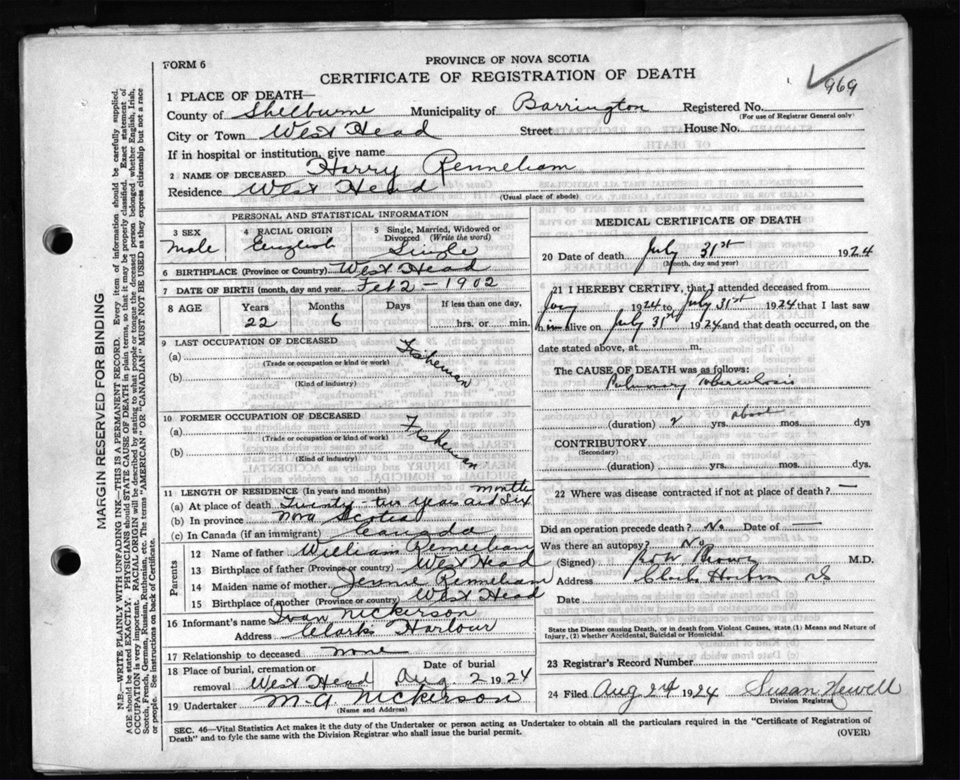 FORM 6
PROVINCE OF NOVA SCOTIA
CERTIFICATE OF REGISTRATION OF DEATH
969
1 PLACE OF DEATH—
County of Shelburne Municipality of Barrington Registered No.
(For use of Registrar General only)
City or Town West Head Street House No.
If in hospital or institution, give name
2 NAME OF DECEASED Harry Renneham
Residence West Head
(Usual place of abode)
PERSONAL AND STATISTICAL INFORMATION
3 SEX 4 RACIAL ORIGIN 5 Single, Married, Widowed or Divorced (Write the word)
Male English Single
6 BIRTHPLACE (Province or Country) West Head
7 DATE OF BIRTH (month, day and year) Feb 2 - 1902
8 AGE Years Months Days If less than one day,
22 6 hrs. or min.
9 LAST OCCUPATION OF DECEASED
(a) Fisheman
(Trade or occupation or kind or work)
(b)
(Kind of industry)
10 FORMER OCCUPATION OF DECEASED
(a) Fisheman
(Trade or occupation or kind of work)
(b)
(Kind of industry)
11 LENGTH OF RESIDENCE (In years and months) months
(a) At place of death Twenty two years and Six
(b) In province Nova Scotia
(c) In Canada (if an immigrant) Canada
Parents
12 Name of father William Renneham
13 Birthplace of father (Province or country) West Head
14 Maiden name of mother Jennie Renneham
15 Birthplace of mother (Province or country) West Head
16 Informant's name Ivan Nickerson
Address Clarks Harbour
17 Relationship to deceased none
18 Place of burial, cremation or removal West Head Date of burial Aug 2 1924
19 Undertaker M. A Nickerson
(Name and Address)
MEDICAL CERTIFICATE OF DEATH
20 Date of death July 31st 1924
(Month, day and year)
21 I HEREBY CERTIFY, that I attended deceased from
1924 to July 31st 1924 that I last saw
him alive on July 31st 1924 and that death occurred, on
date stated above, at m.
The CAUSE OF DEATH was as follows:
Pulmonary Tuberculosis
about
(duration) 2 yrs. mos. dys
CONTRIBUTORY
(Secondary)
(duration) yrs. mos. dys.
22 Where was disease contracted if not at place of death? —
Did an operation precede death? No Date of —
Was there an autopsy? No
(Signed) John Brown M.D.
Address Clarks Harbour NS
Date
State the Disease causing Death, or in death from Violent Causes, state (1) Means and Nature of
Injury, (2) whether Accidental, Suicidal or Homicidal.
23 Registrar's Record Number
24 Filed Aug 2nd 1924 Susan Newell
Division Registrar
SEC. 46—Vital Statistics Act makes it the duty of the Undertaker or person acting as Undertaker to obtain all the particulars required in the "Certificate of Registration of
Death" and to fyle the same with the Division Registrar who shall issue the burial permit. (OVER)
MARGIN RESERVED FOR BINDING
N.B.—WRITE PLAINLY WITH UNFADING INK—THIS IS A PERMANENT RECORD. Every item of information should be carefully supplied.
AGE should be stated EXACTLY. PHYSICIANS should STATE CAUSE OF DEATH in plain terms, so that it may be properly classified. Exact statement of
OCCUPATION is very important. RACIAL ORIGIN will be described by stating to what people or tongue the deceased person belonged whether English, Irish,
Scotch, French, German, Russian, Ruthenian, etc. The terms "AMERICAN" OR "CANADIAN" MUST NOT BE USED as they express citizenship but not a race
or people. See instructions on back of Certificate.